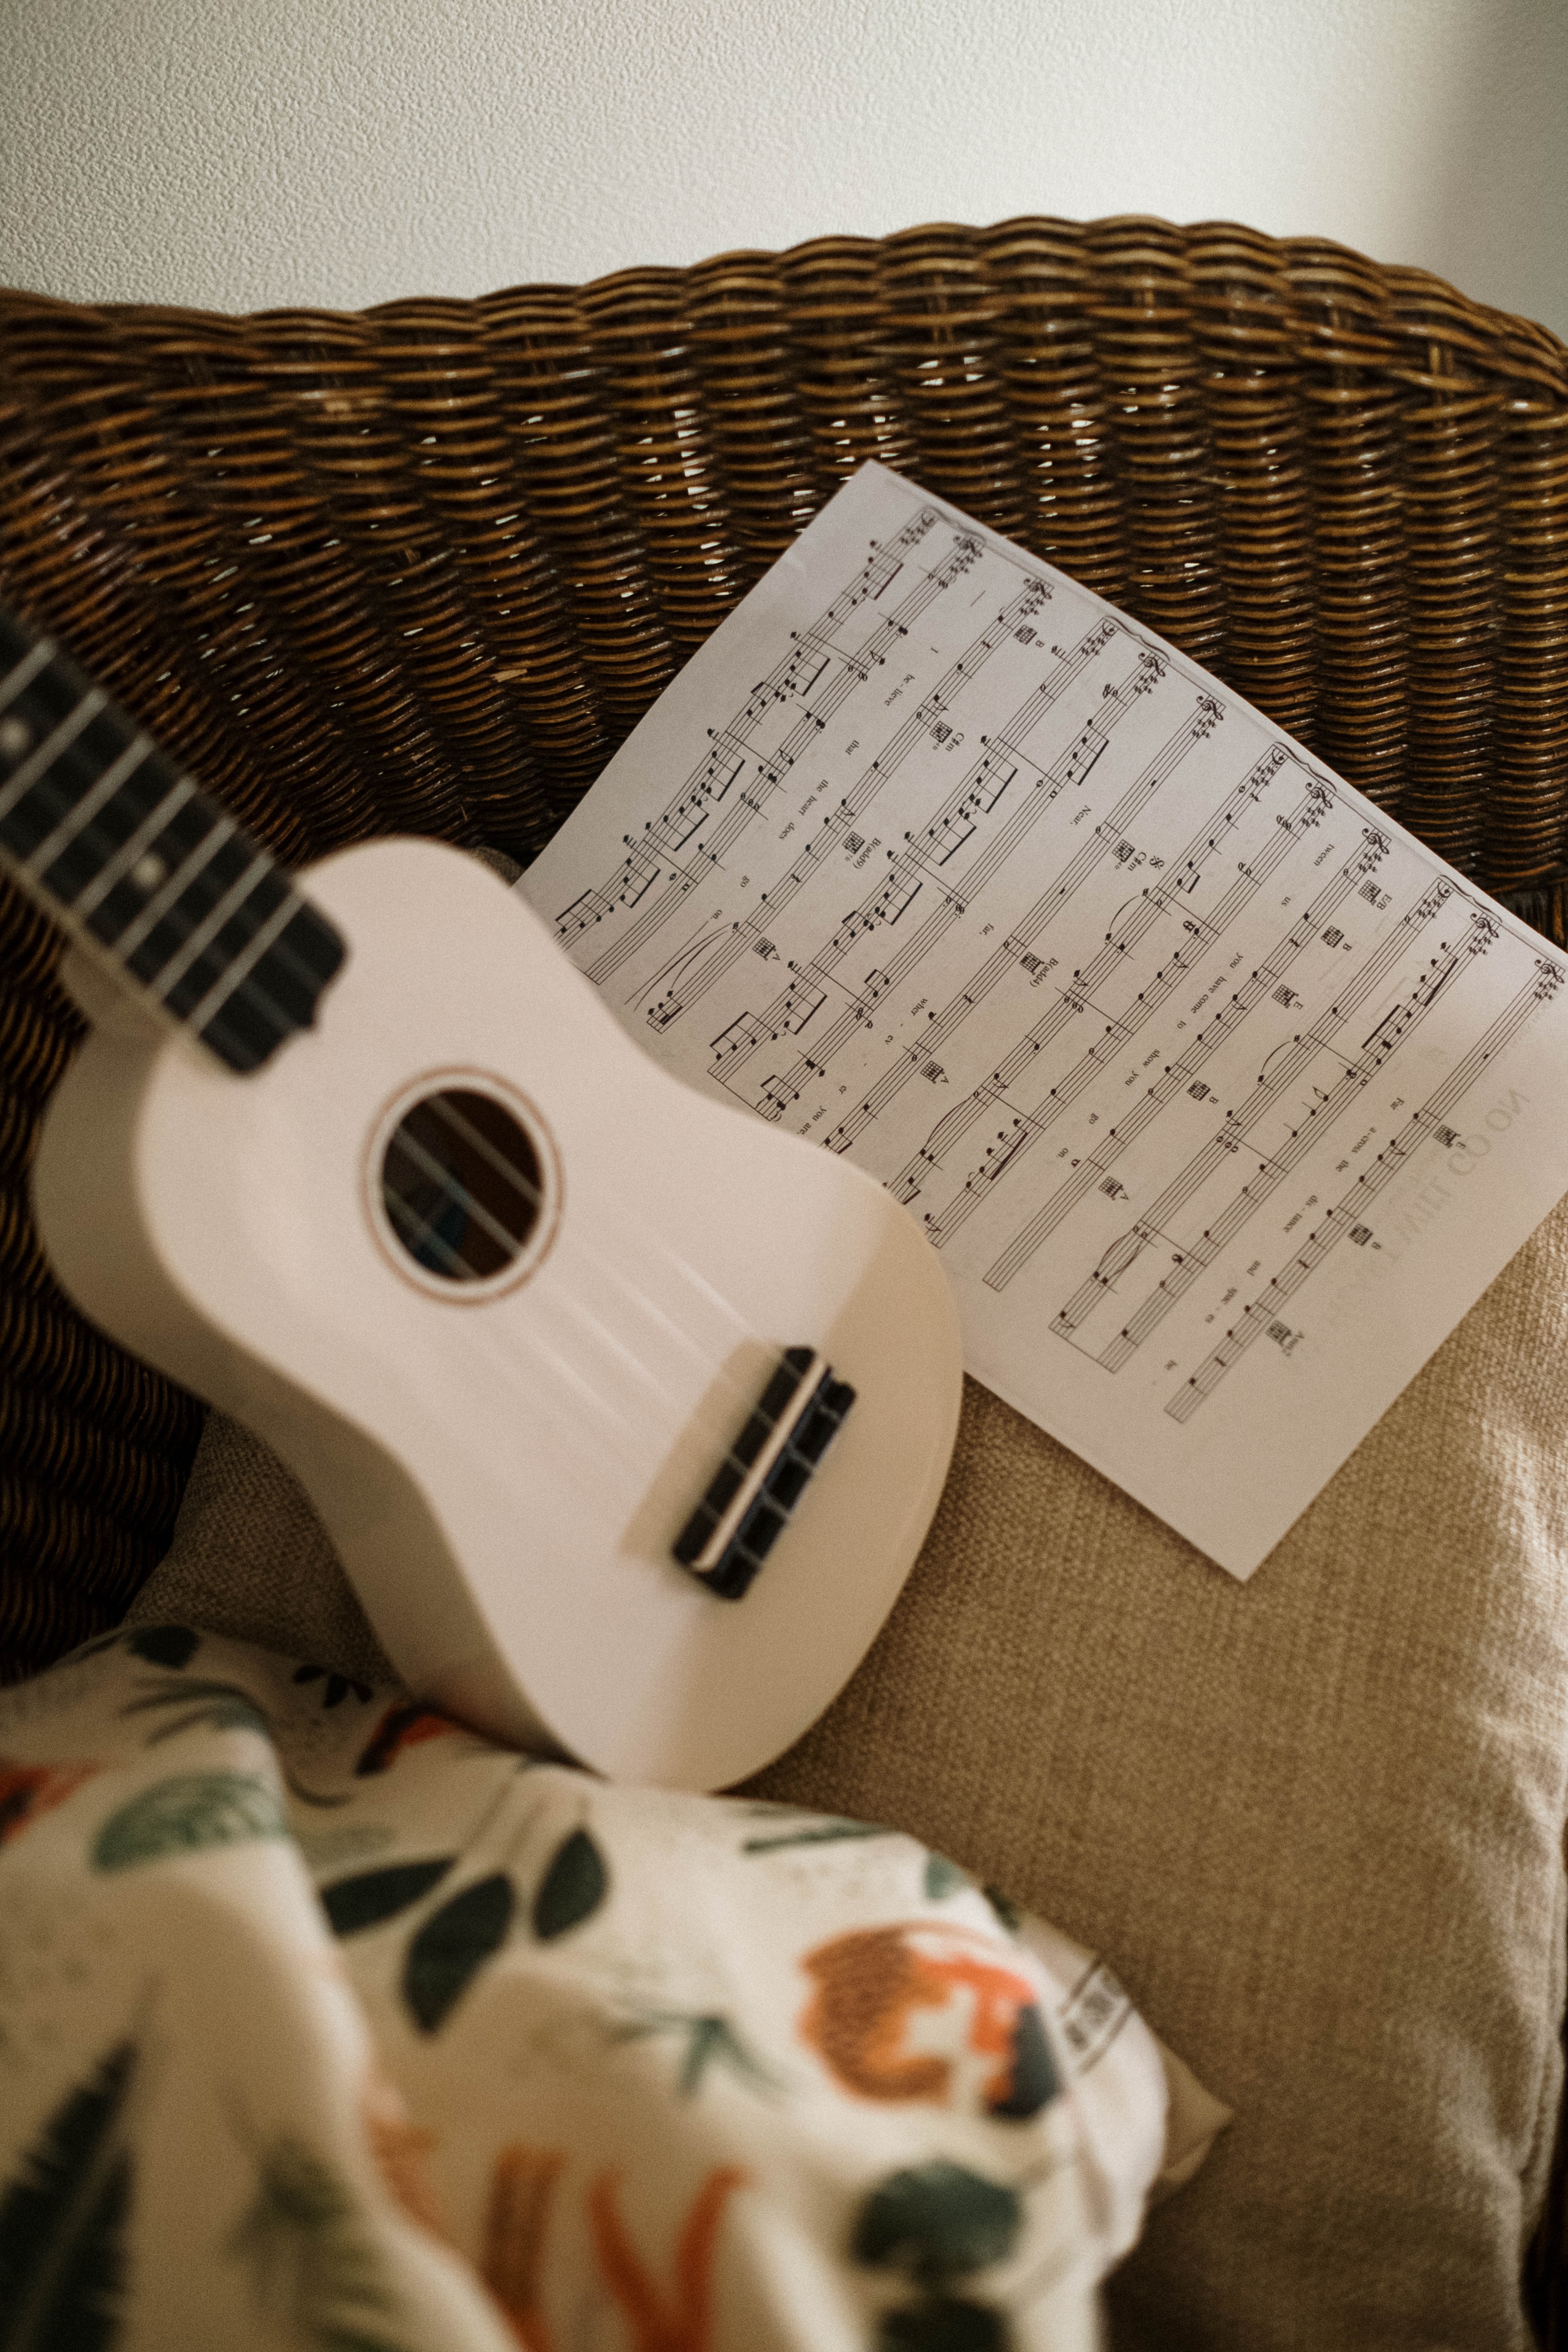 E B
Far a - cross the dis - tance and spac - es be
E/B B E B A
tween us you have come to show you go on.
C♯m B(add4) A
Near, far, wher - ev - er you are,
B C♯m B(add9) A
I be - lieve that the heart does go on.